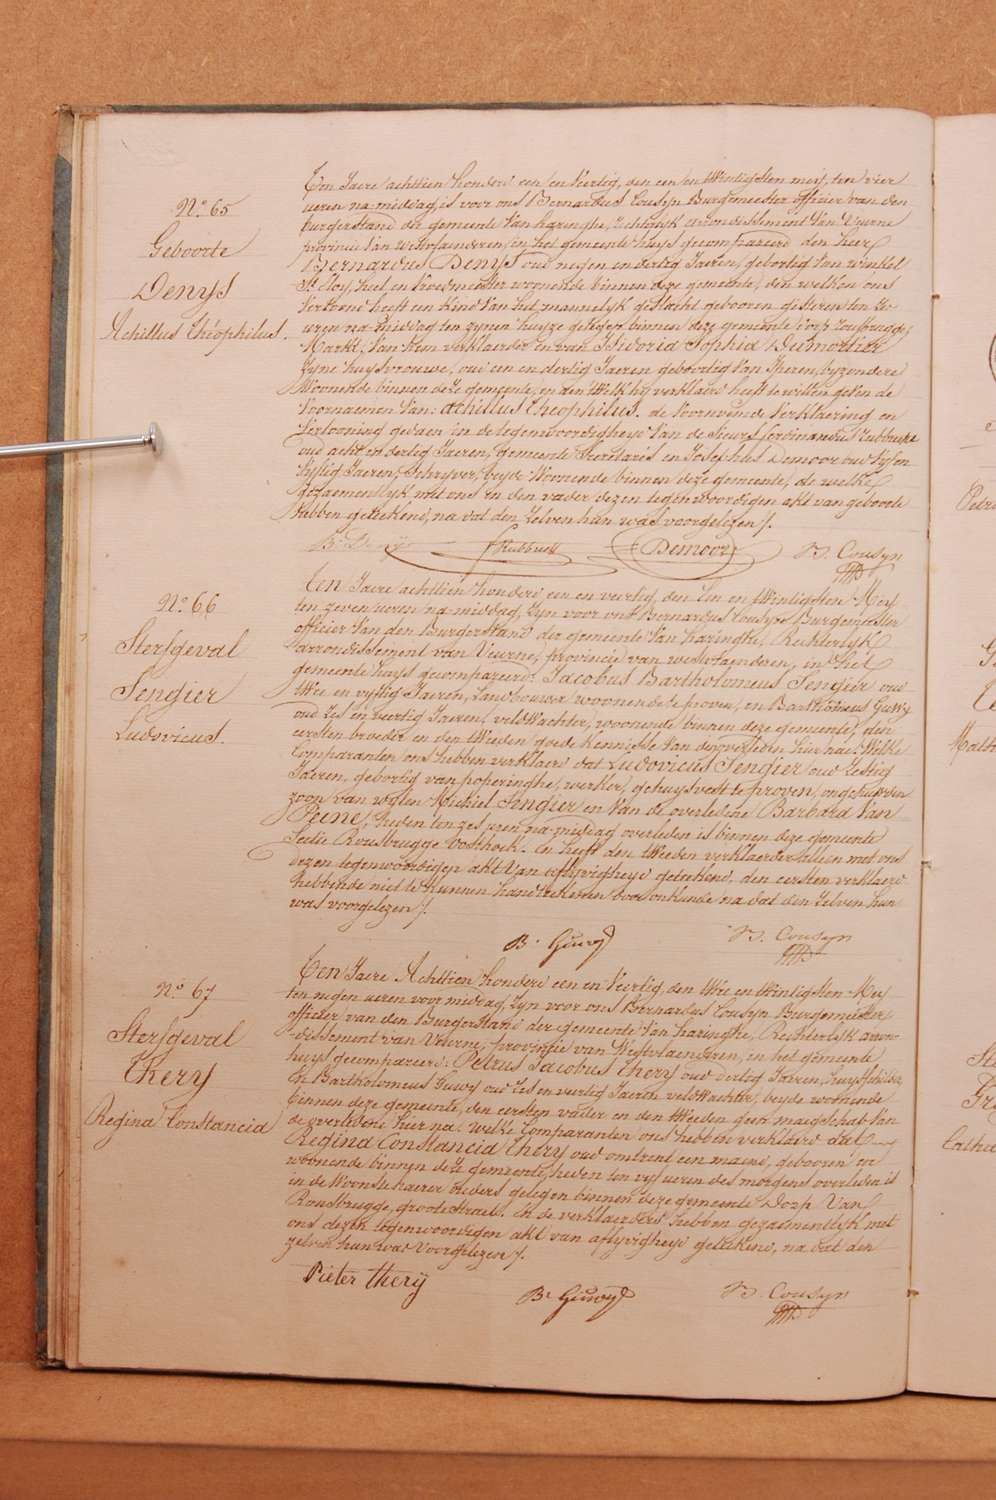 N.º 65
Geboorte
Denys
Achillus Théophilus.
Ten Jaere achttien honderd een en veertig, den een en twintigsten mey, ten vier
ueren na middag, is voor ons Bernardus Cousyn Burgemeester officier van den
burgerstand der gemeente Van haringhe, rechterlyk arrondissement Van Veurne
provincie Van westvlaenderen, in het gemeente huys gecompareerd den heer
Bernardus Denys oud negen en dertig Jaeren, gebortig Van winkel
St. Eloy, heel en Vroedmeester woonende binnen deze gemeente, den welken ons
Vertoond heeft een kind Van het mannelyk geslacht gebooren gisteren ten
ueren na middag ten zynen huyze gelegen binnen deze gemeente Dorp Rousbrugge
Markt, Van hem verklaerder en van Isidoria Sophia Dumortier
Zyne huysvrouwe, oud een en dertig Jaeren geboortig Van Iperen, byzondere
Woonende binnen deze gemeente, en den Welk hy verklaerd heeft te willen geven de
Voornaemen Van: Achillus Theophilus. de Voornoemde Verklaering en
Vertooning gedaen in de tegenwoordigheyd Van de Sieurs ferdinandus Rubbrecht
oud acht en dertig Jaeren, gemeente Secretaris en Josephus Demoor oud Vyf en
Vyftig Jaeren, Schryver, beyde Woonende binnen deze gemeente, de welke
gezaementlyk met ons en den vader dezen tegenwoordigen akt van geboorte
hebben geteekend, na dat den Zelven hun was voorgelezen /.
B. Denys F Rubbrecht Demoor B. Cousyn
N.º 66
Sterfgeval
Sengier
Ludovicus.
Ten Jaere achttien honderd een en veertig, den een en twintigsten Mey
ten zeven ueren na middag, Zyn voor ons Bernardus Cousyn Burgemeester
officier Van den Burgerstand der gemeente Van haringhe, Rechterlyk
arrondissement van Veurne, provincie van westvlaenderen, in het
gemeente huys gecompareerd: Jacobus Bartholomeus Sengier oud
twee en vyftig Jaeren, Landbouwer woonende te proven, en Bartholomeus Guwy
oud Zes en veertig Jaeren, veldwachter, woonende binnen deze gemeente, den
eersten broeder en den tweeden goede kennisse Van den overleden hier naer Welke
Comparanten ons hebben verklaerd dat Ludovicus Sengier oud Zestig
Jaeren, gebortig van poperinghe, werker, gehuysvest te proven, ongehuwden
zoon van wylen Michiel Sengier en Van de overledene Barbara Van
Peene, heden ten zes ueren na middag overleden is binnen deze gemeente
Sectie Rousbrugge oosthoek. En heeft den tweeden verklaerder alleen met ons
dezen tegenwoordigen akt Van aflyvigheyd geteekend, den eersten verklaerd
hebbende niet te kunnen handteekenen door onkunde na dat den Zelven hun
was voorgelezen /.
B. Guwy B. Cousyn
N.º 67
Sterfgeval
Thery
Regina Constancia
Ten Jaere Achttien honderd een en Veertig, den twee en twintigsten Mey
ten negen ueren voor middag, Zyn voor ons Bernardus Cousyn Burgemeester
officier van den Burgerstand der gemeente Van haringhe, Rechterlyk arron-
-dissement van Veurne, provincie van Westvlaenderen, in het gemeente
huys gecompareerd: Petrus Jacobus Thery oud dertig Jaeren, huysschilder,
En Bartholomeus Guwy oud Zes en veertig Jaeren veldwachter, beyde woonende
binnen deze gemeente, den eersten vader en den tweeden geen maegschap Van
de overledene hier na: welke Comparanten ons hebben verklaerd dat
Regina Constancia Thery oud omtrent een maend, gebooren en
woonende binnen deze gemeente, heden ten vyf ueren des morgens overleden is
in de Woonste haerer ouders gelegen binnen deze gemeente Dorp Van
Rousbrugge, groote straet. en de verklaerders hebben gezaementlyk met
ons dezen tegenwoordigen akt van aflyvigheyd geteekend, na dat den
zelven hun was Voorgelezen /.
Pieter thery B. Guwy B. Cousyn
Petr